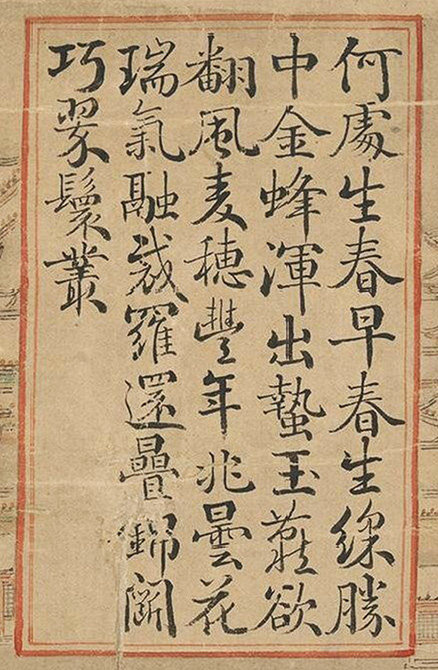 何處生春早春生綵勝
中金蜂渾出蟄玉燕欲
翻風麦穗豐年兆曇花
瑞氣融裁羅還疊錦鬬
巧翠鬟叢